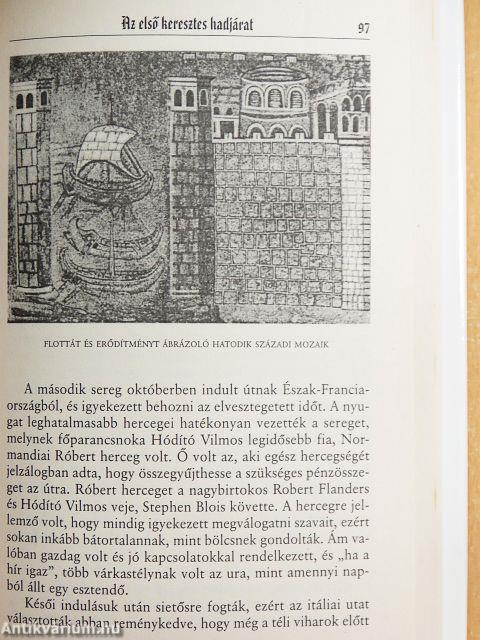 Az első keresztes hadjárat 97
FLOTTÁT ÉS ERŐDÍTMÉNYT ÁBRÁZOLÓ HATODIK SZÁZADI MOZAIK
A második sereg októberben indult útnak Észak-Francia-
országból, és igyekezett behozni az elvesztegetett időt. A nyu-
gat leghatalmasabb hercegei hatékonyan vezették a sereget,
melynek főparancsnoka Hódító Vilmos legidősebb fia, Nor-
mandiai Róbert herceg volt. Ő volt az, aki egész hercegségét
jelzálogban adta, hogy összegyűjthesse a szükséges pénzössze-
get az útra. Róbert herceget a nagybirtokos Robert Flanders
és Hódító Vilmos veje, Stephen Blois követte. A hercegre jel-
lemző volt, hogy mindig igyekezett megválogatni szavait, ezért
sokan inkább bátortalannak, mint bölcsnek gondolták. Ám va-
lóban gazdag volt és jó kapcsolatokkal rendelkezett, és „ha a
hír igaz”, több várkastélynak volt az ura, mint amennyi nap-
ból állt egy esztendő.
Késői indulásuk után sietősre fogták, ezért az itáliai utat
választották abban reménykedve, hogy még a téli viharok előtt
Antikvarium.hu